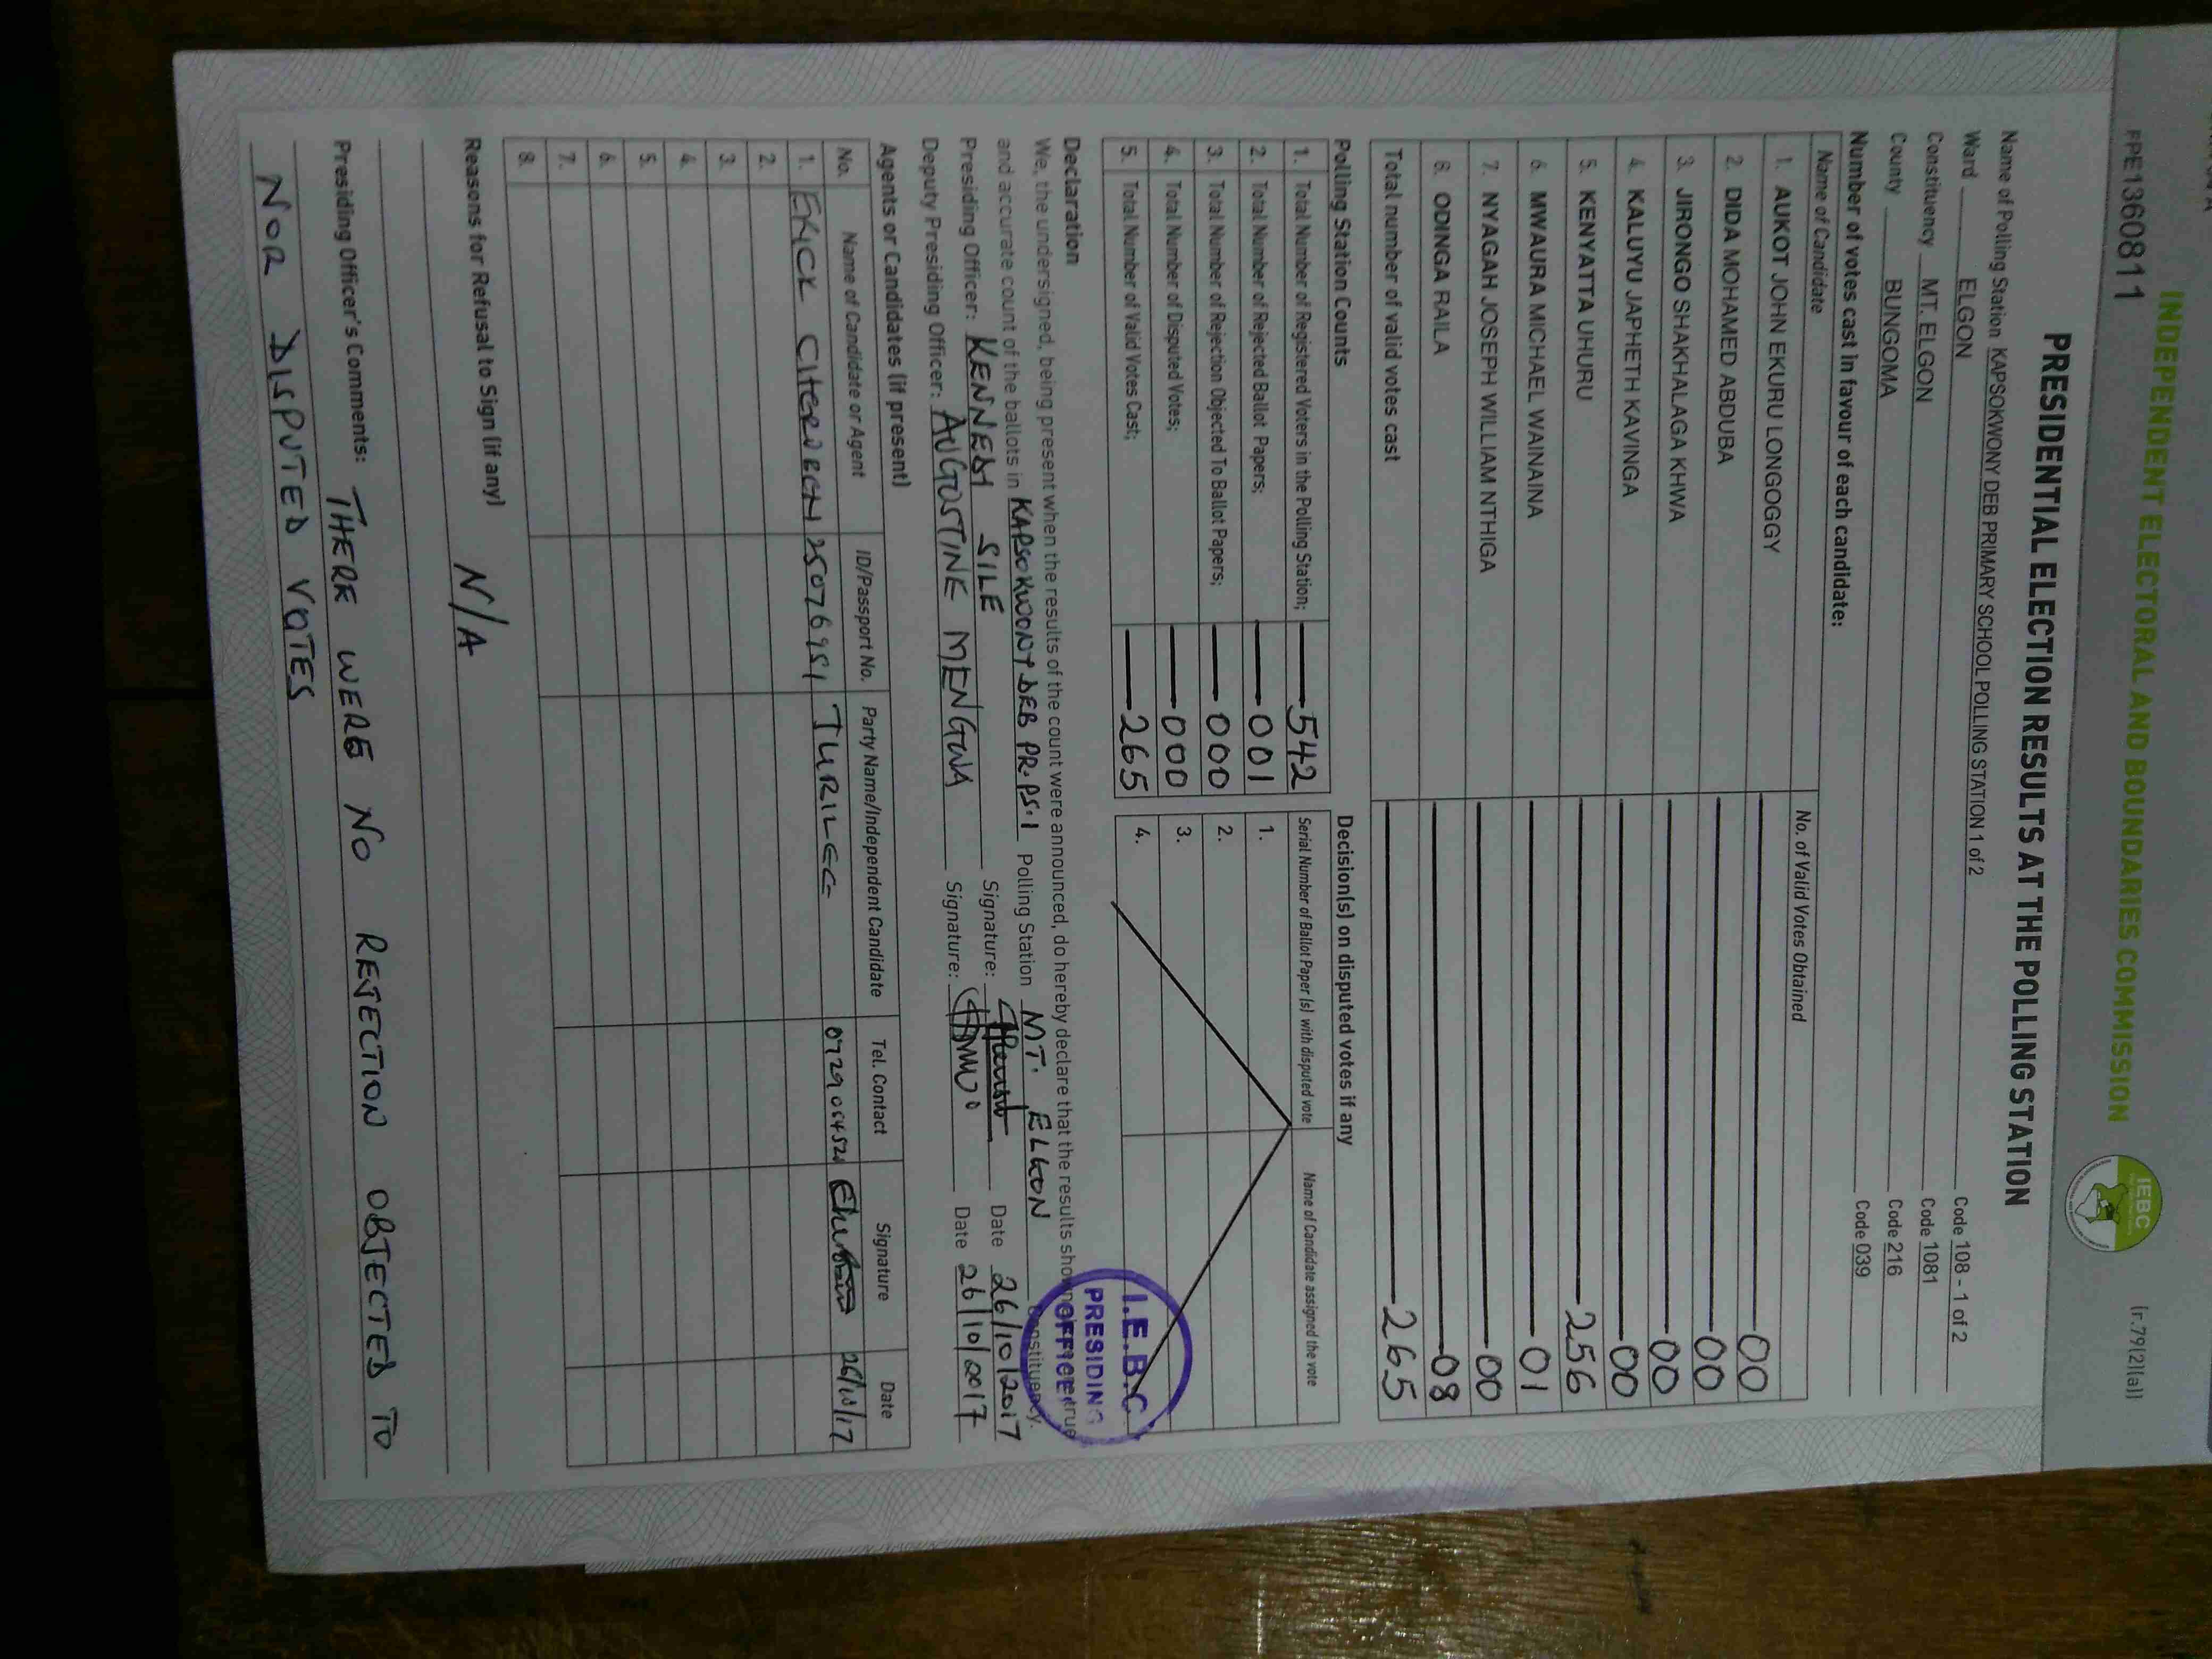 INDEPENDENT ELECTORAL AND BOUNDARIES COMMISSION
IEBC
(r.79(2)(a))
PPE1360811
PRESIDENTIAL ELECTION RESULTS AT THE POLLING STATION
Name of Polling Station KAPSOKWONY DEB PRIMARY SCHOOL POLLING STATION 1 of 2 Code 108 - 1 of 2
Ward ELGON Code 1081
Constituency MT. ELGON Code 216
County BUNGOMA Code 039
Number of votes cast in favour of each candidate:
Name of Candidate No. of Valid Votes Obtained
1. AUKOT JOHN EKURU LONGOGGY 00
2. DIDA MOHAMED ABDUBA 00
3. JIRONGO SHAKHALAGA KHWA 00
4. KALUYU JAPHETH KAVINGA 00
5. KENYATTA UHURU 256
6. MWAURA MICHAEL WAINAINA 01
7. NYAGAH JOSEPH WILLIAM NTHIGA 00
8. ODINGA RAILA 08
Total number of valid votes cast 265
Polling Station Counts
1. Total Number of Registered Voters in the Polling Station; 542
2. Total Number of Rejected Ballot Papers; 001
3. Total Number of Rejection Objected To Ballot Papers; 000
4. Total Number of Disputed Votes; 000
5. Total Number of Valid Votes Cast; 265
Decision(s) on disputed votes if any
Serial Number of Ballot Paper (s) with disputed vote Name of Candidate assigned the vote
1.
2.
3.
4.
I.E.B.C
PRESIDING
OFFICER
Declaration
We, the undersigned, being present when the results of the count were announced, do hereby declare that the results shown true
and accurate count of the ballots in KAPSOKWONY DEB PR. PS. 1 Polling Station MT. ELGON Constituency.
Presiding Officer: KENNEDY SILE Signature: Date 26/10/2017
Deputy Presiding Officer: AUGUSTINE MENGWA Signature: Date 26/10/2017
Agents or Candidates (if present)
No. Name of Candidate or Agent ID/Passport No. Party Name/Independent Candidate Tel. Contact Signature Date
1. ERICK 25076951 26/10/17
2.
3.
4.
5.
6.
7.
8.
Reasons for Refusal to Sign (if any) N/A
Presiding Officer's Comments: THERE WERE NO REJECTION OBJECTED TO
NOR DISPUTED VOTES